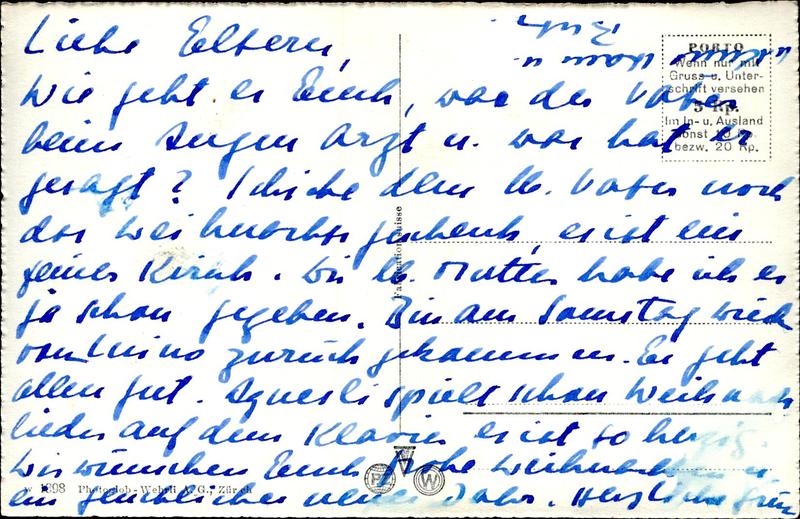 Liebe Eltern,
Wie geht es Euch, war der Vater
beim Augen Arzt u. was hat er
gesagt? Schicke dem lb. Vater noch
das Weihnachtsgeschenk, es ist ein
feines Kirsch. Der lb. Mutter habe ich es
ja schon gegeben. Bin am Samstag wieder
von zurück gekommen. Es geht
allen gut. Agnesli spielt schon Weihnachts
lieder auf dem Klavier es ist so herzig.
Wir wünschen Euch frohe Weihnachten u
ein glückliches neues Jahr. Herzliche Grüs
PORTO
Wenn nur mit
Gruss- u. Unter-
schrift versehen
5 Rp.
Im In- u. Ausland
sonst 10 Rp.
bezw. 20 Rp.
Fabrication suisse
P W
W 1898 Photoglob-Wehrli A.G., Zürich